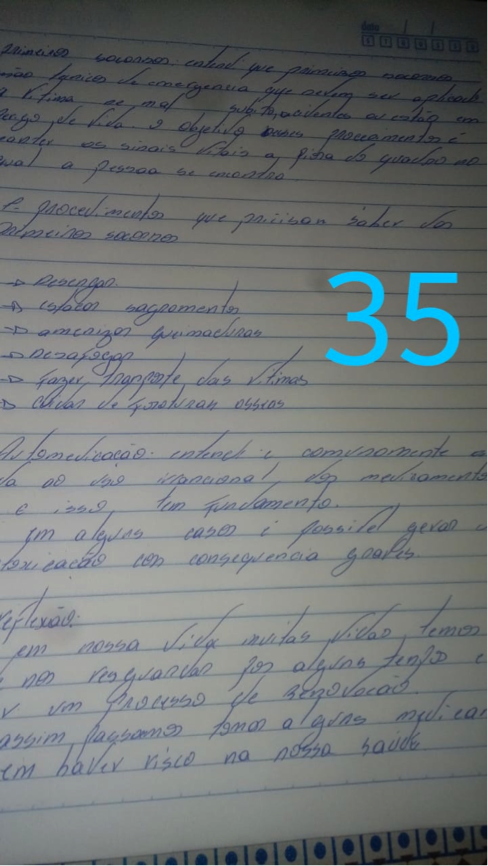 primeiros socorros: entendi que primeiros socorros
são tecnicos de emergencia que devem ser aplicada
a vitima de mal subito, acidentes ou estão em
perigo de vida. o objetivo desses procedimentos é
manter os sinais vitais a ficha do quadro no
qual a pessoa se encontra
procedimentos que precisam saber dos
primeiros socorros
→ Desengar
→ estacar sagramentos
→ amenizar queimaduras
→ Desafogar
→ Fazer transporte das vitimas
→ cuidar de Fraturas osseos
35
Automedicação: entendi é comunamente
ao uso irracional, dos medicamento
e isso, tem Fundamento.
em alguns casos é possivel gerar
toxicacão com consequencia graves.
reflexão:
em nossa vida muitas vidas temos
nos resguardar por alguns tempo e
um processo de renovacão.
assim passamos tomar alguns medicar
em haver risco na nossa saúde